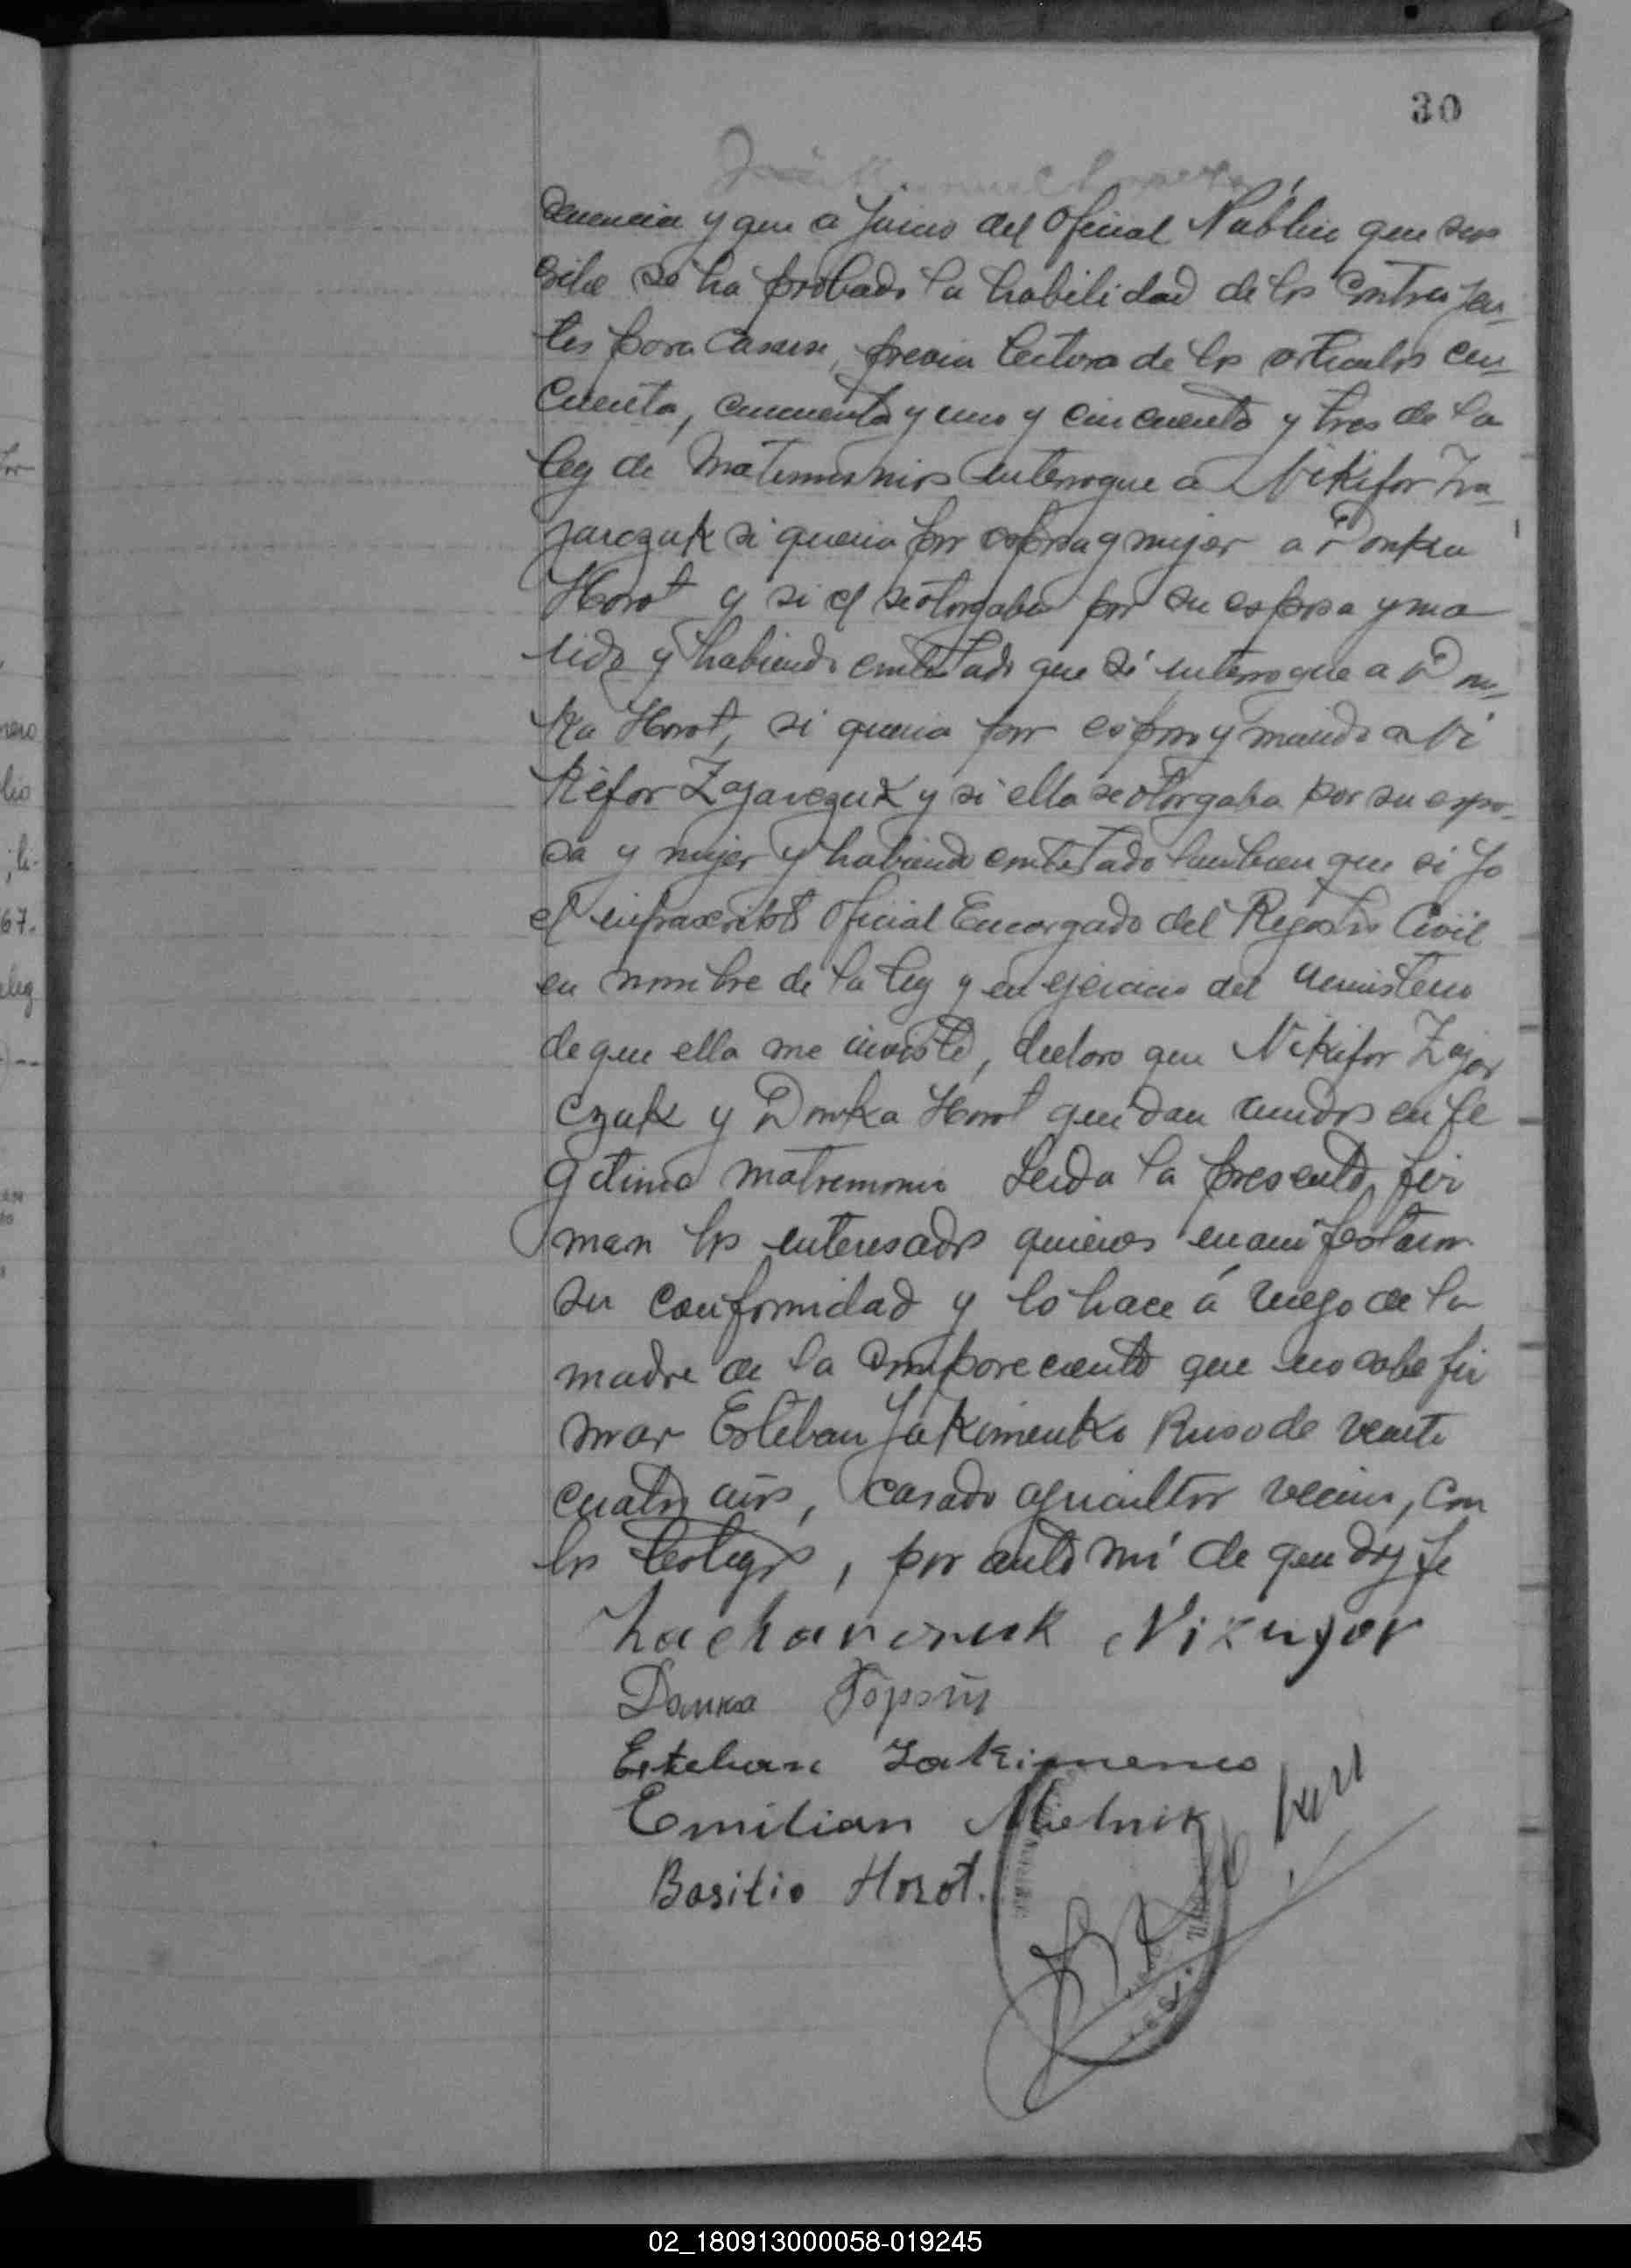 30
dencia y que a juicio del Oficial Público que sus
cribe se ha probado la habilidad de los contrayen-
tes para casarse, previa lectura de los articulos cin-
cuenta, cincuenta y uno y cincuenta y tres de la
ley de Matrimonios interrogue a Nikifor Za-
jarczuk si queria por esposa y mujer a Donka
Horot y si el se otorgaba por su esposo y ma
rido y habiendo contestado que si interrogue a Don-
ka Horot, si queria por esposo y marido a Ni
kifor Zajarczuk y si ella se otorgaba por su espo-
sa y mujer y habiendo contestado tambien que si yo
el infrascrito Oficial Encargado del Registro Civil
en nombre de la ley y en ejercicio del ministerio
de que ella me inviste, declaro que Nikifor Zajar
czuk y Donka Horot quedan unidos en le
gitimo matrimonio Leida la presente, fir
man los interesados quienes manifestaron
su conformidad y lo hace á ruego de la
madre de la compareciente que no sabe fir
mar Esteban Jakimenko Ruso de veinte
cuatro años, casado agricultor vecino, con
los testigos, por ante mi de que doy fe
Zacharczuk Nikyfor
Донка Горопъ
Esteban Jakimenco
Emilian Mielnik
Basilio Horot.
02_180913000058-019245